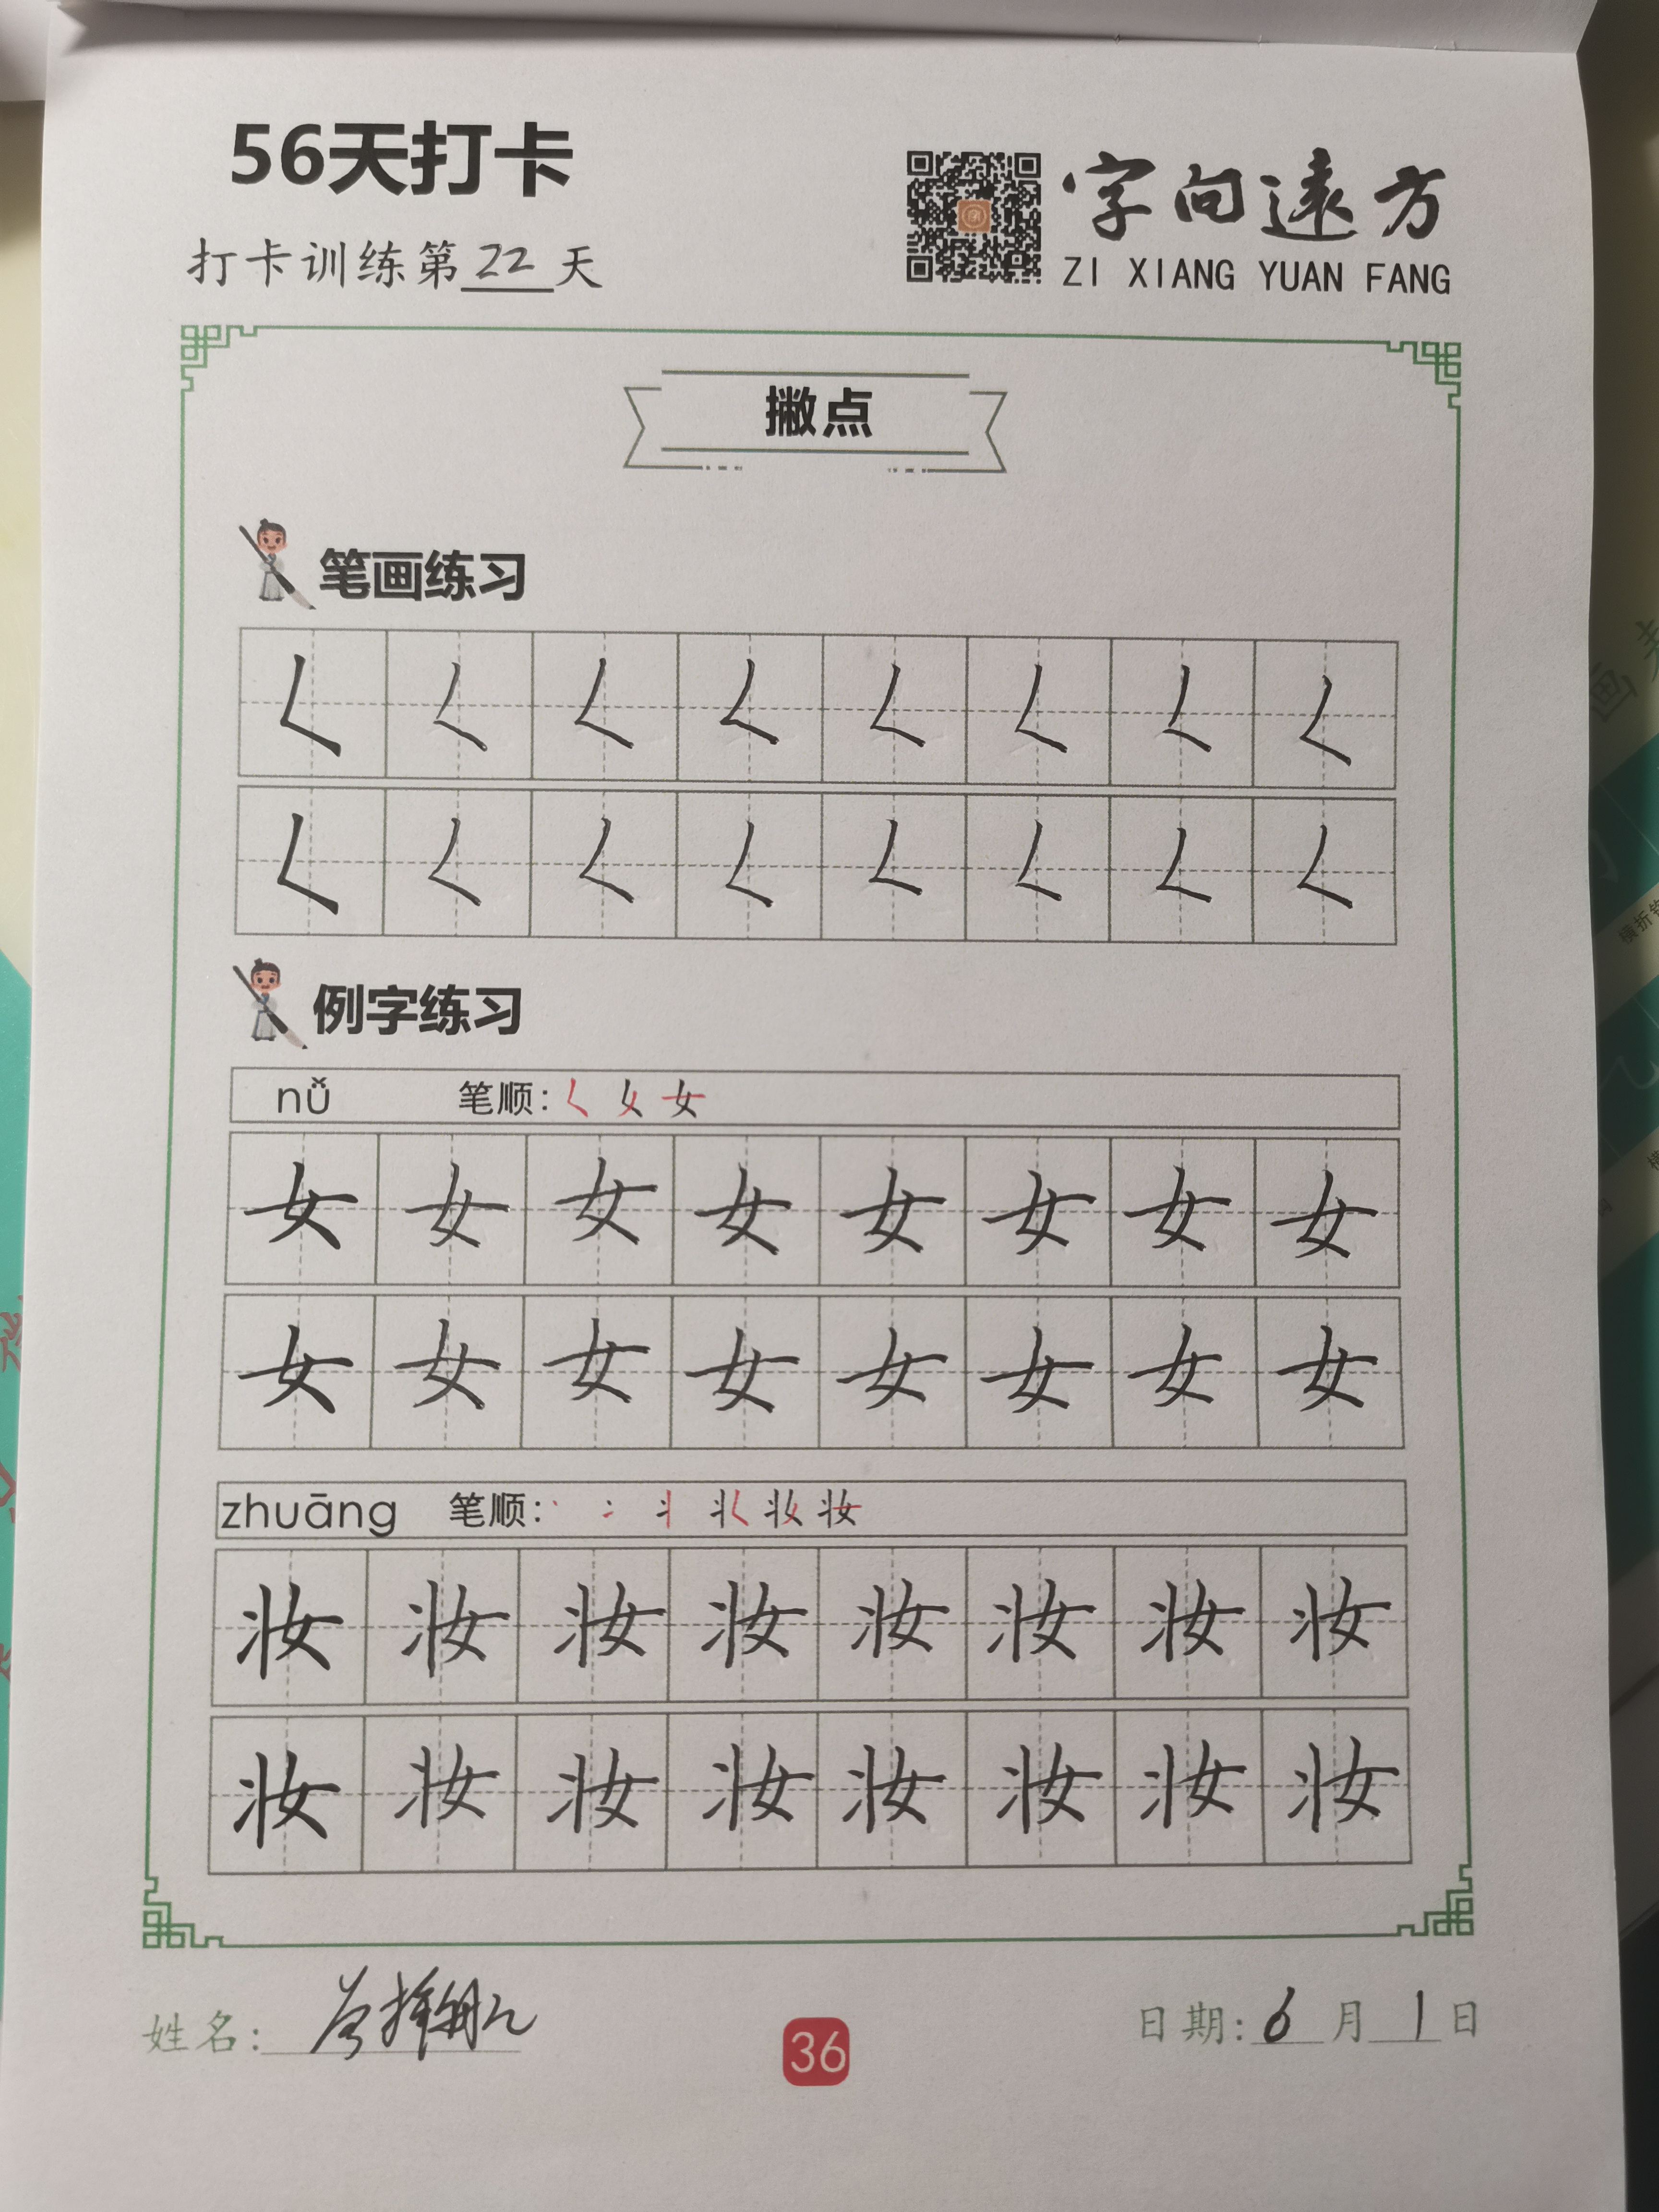 56天打卡
字向遠方
打卡训练第22天
ZI XIANG YUAN FANG
撇点
笔画练习
𡿨 𡿨 𡿨 𡿨 𡿨 𡿨 𡿨 𡿨
𡿨 𡿨 𡿨 𡿨 𡿨 𡿨 𡿨 𡿨
例字练习
nǚ 笔顺: 女
女 女 女 女 女 女 女 女
女 女 女 女 女 女 女 女
zhuāng 笔顺: 妆
妆 妆 妆 妆 妆 妆 妆 妆
妆 妆 妆 妆 妆 妆 妆 妆
姓名:
36
日期: 6 月 1 日